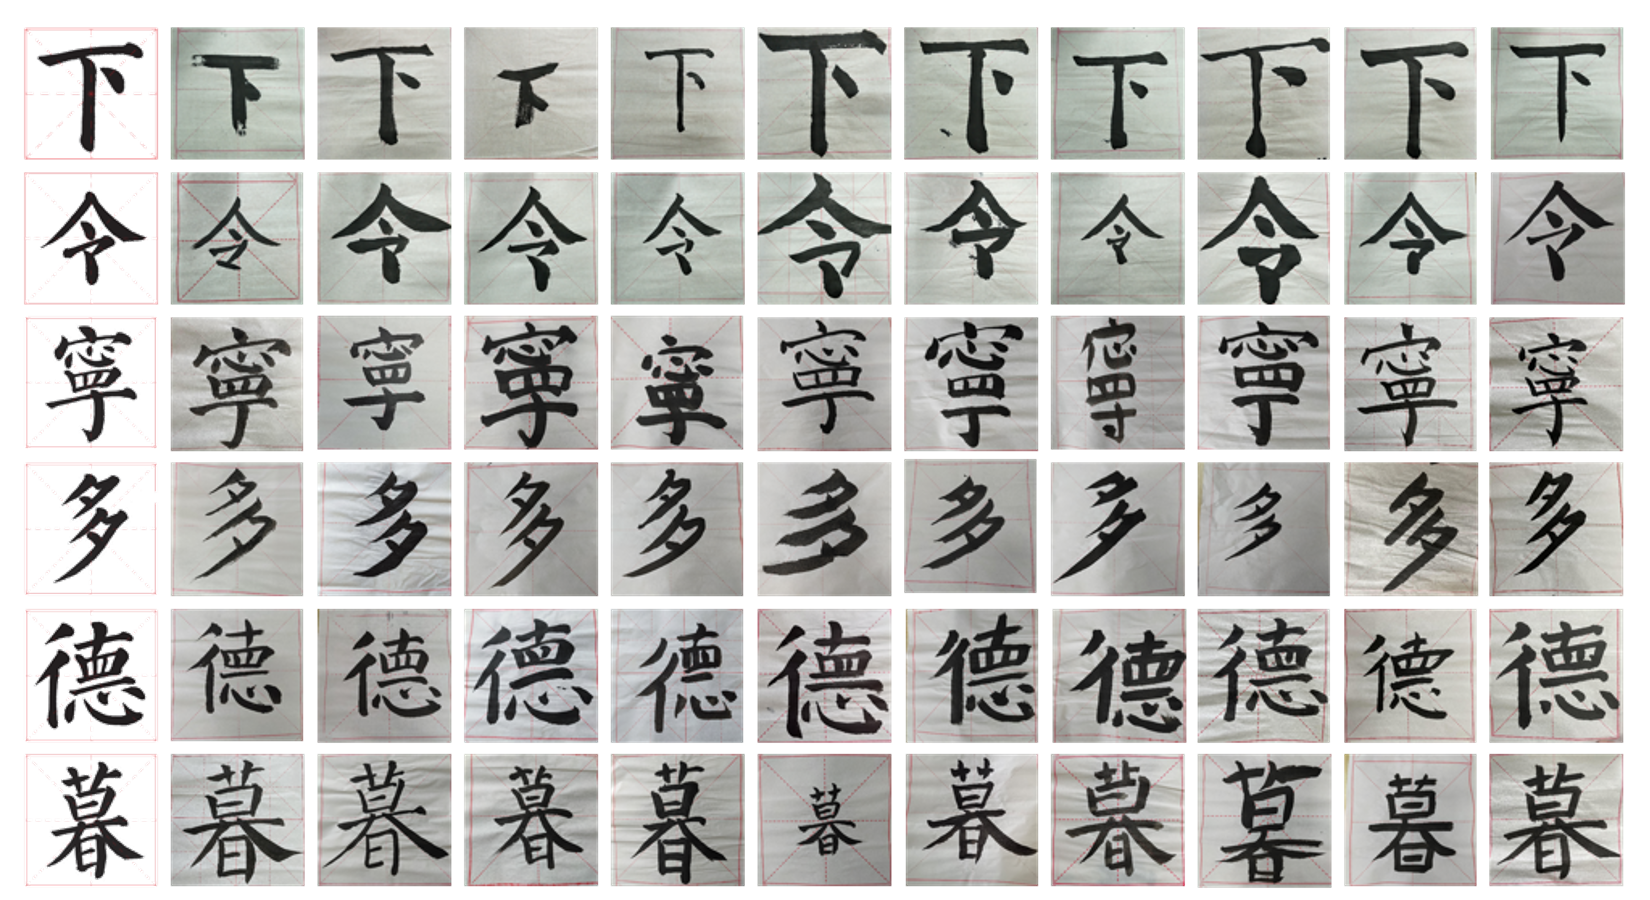 下 下 下 下 下 下 下 下 下 下 下
令 令 令 令 令 令 令 令 令 令 令
寧 寧 寧 寧 寧 寧 寧 寧 寧 寧 寧
多 多 多 多 多 多 多 多 多 多 多
德 德 德 德 德 德 德 德 德 德 德
暮 暮 暮 暮 暮 暮 暮 暮 暮 暮 暮